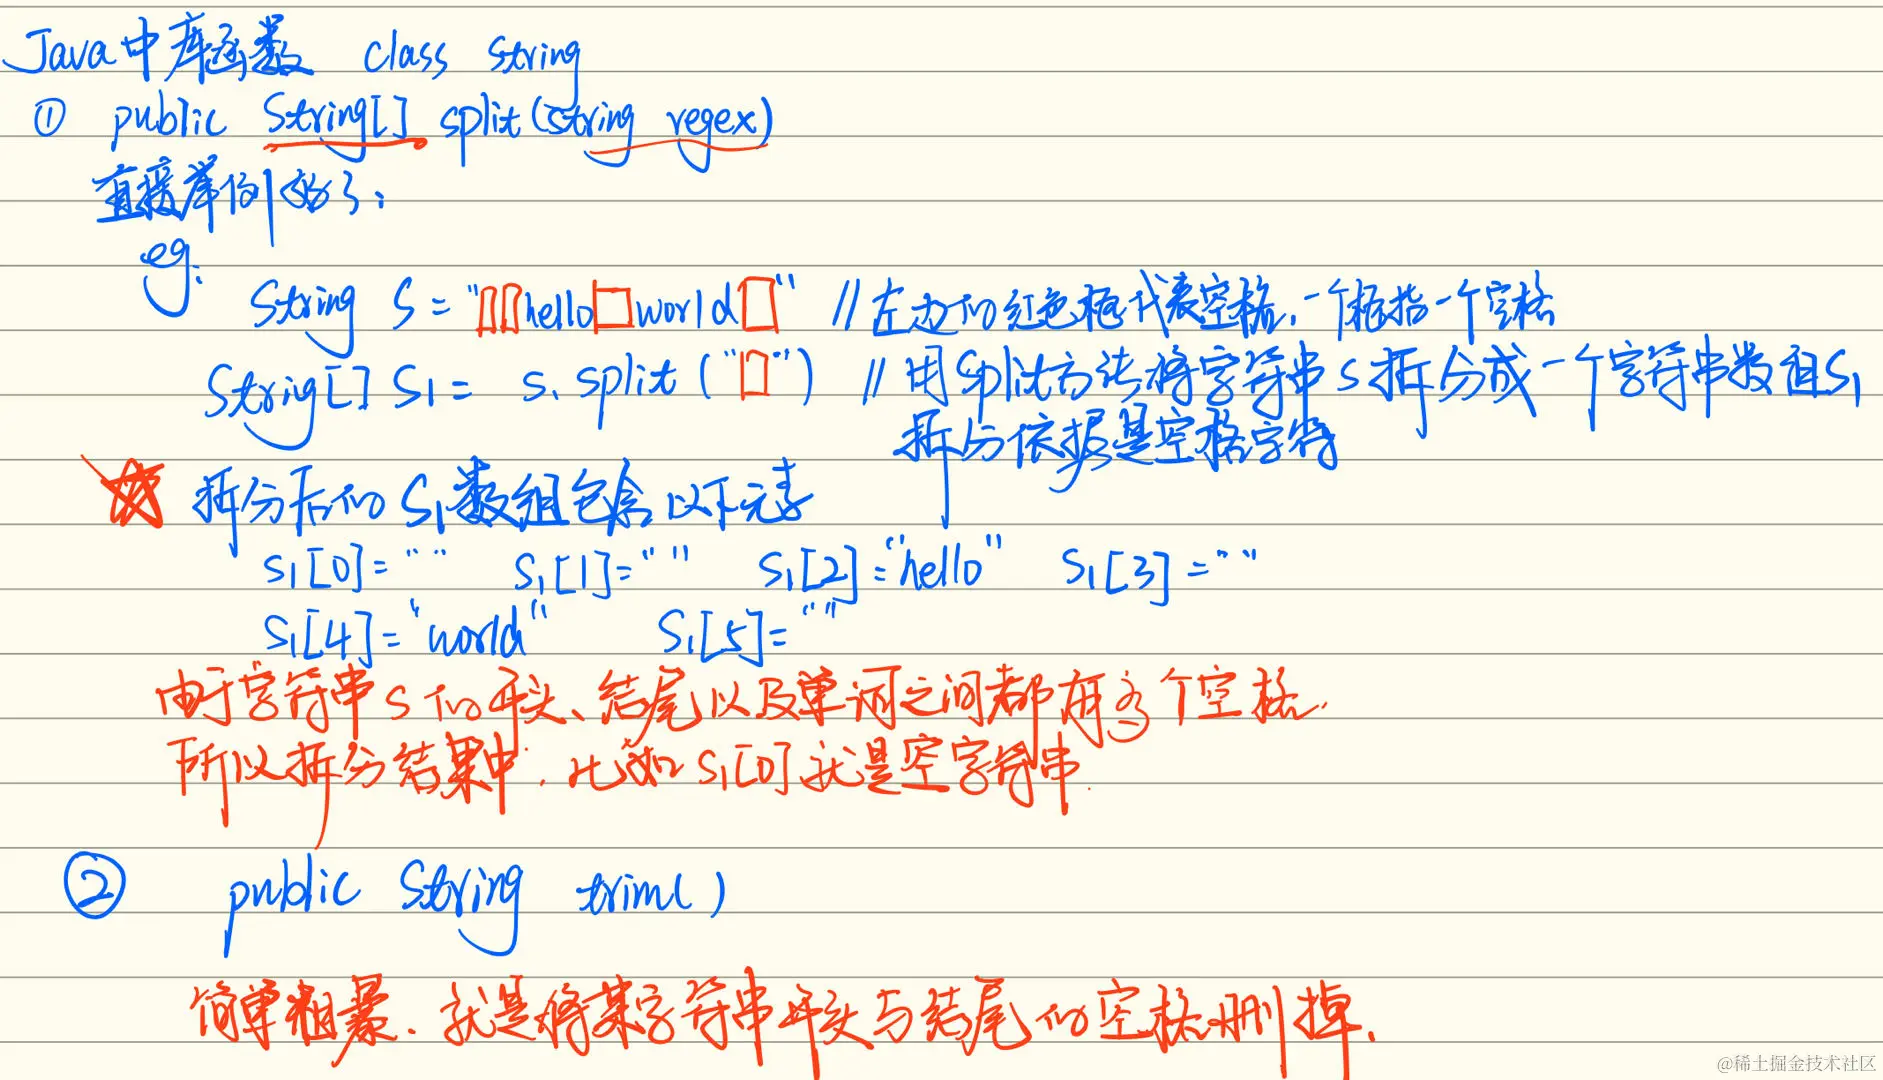 Java中库函数 class String
① public String[] split(string regex)
直接举例好了:
eg:
String S = "□□hello□world□" // 左边的红色框代表空格,一个框指一个空格
Strig[] S1 = s.split("□") // 用split方法将字符串s拆分成一个字符串数组S1
拆分依据是空格字符
拆分后的S1数组包含以下元素
S1[0]="" S1[1]="" S1[2]="hello" S1[3]=""
S1[4]="world" S1[5]=""
由于字符串s的开头、结尾以及单词之间都有多个空格,
所以拆分结果中,比如S1[0]就是空字符串.
② public String trim()
简单粗暴,就是将某字符串开头与结尾的空格删掉.
@稀土掘金技术社区